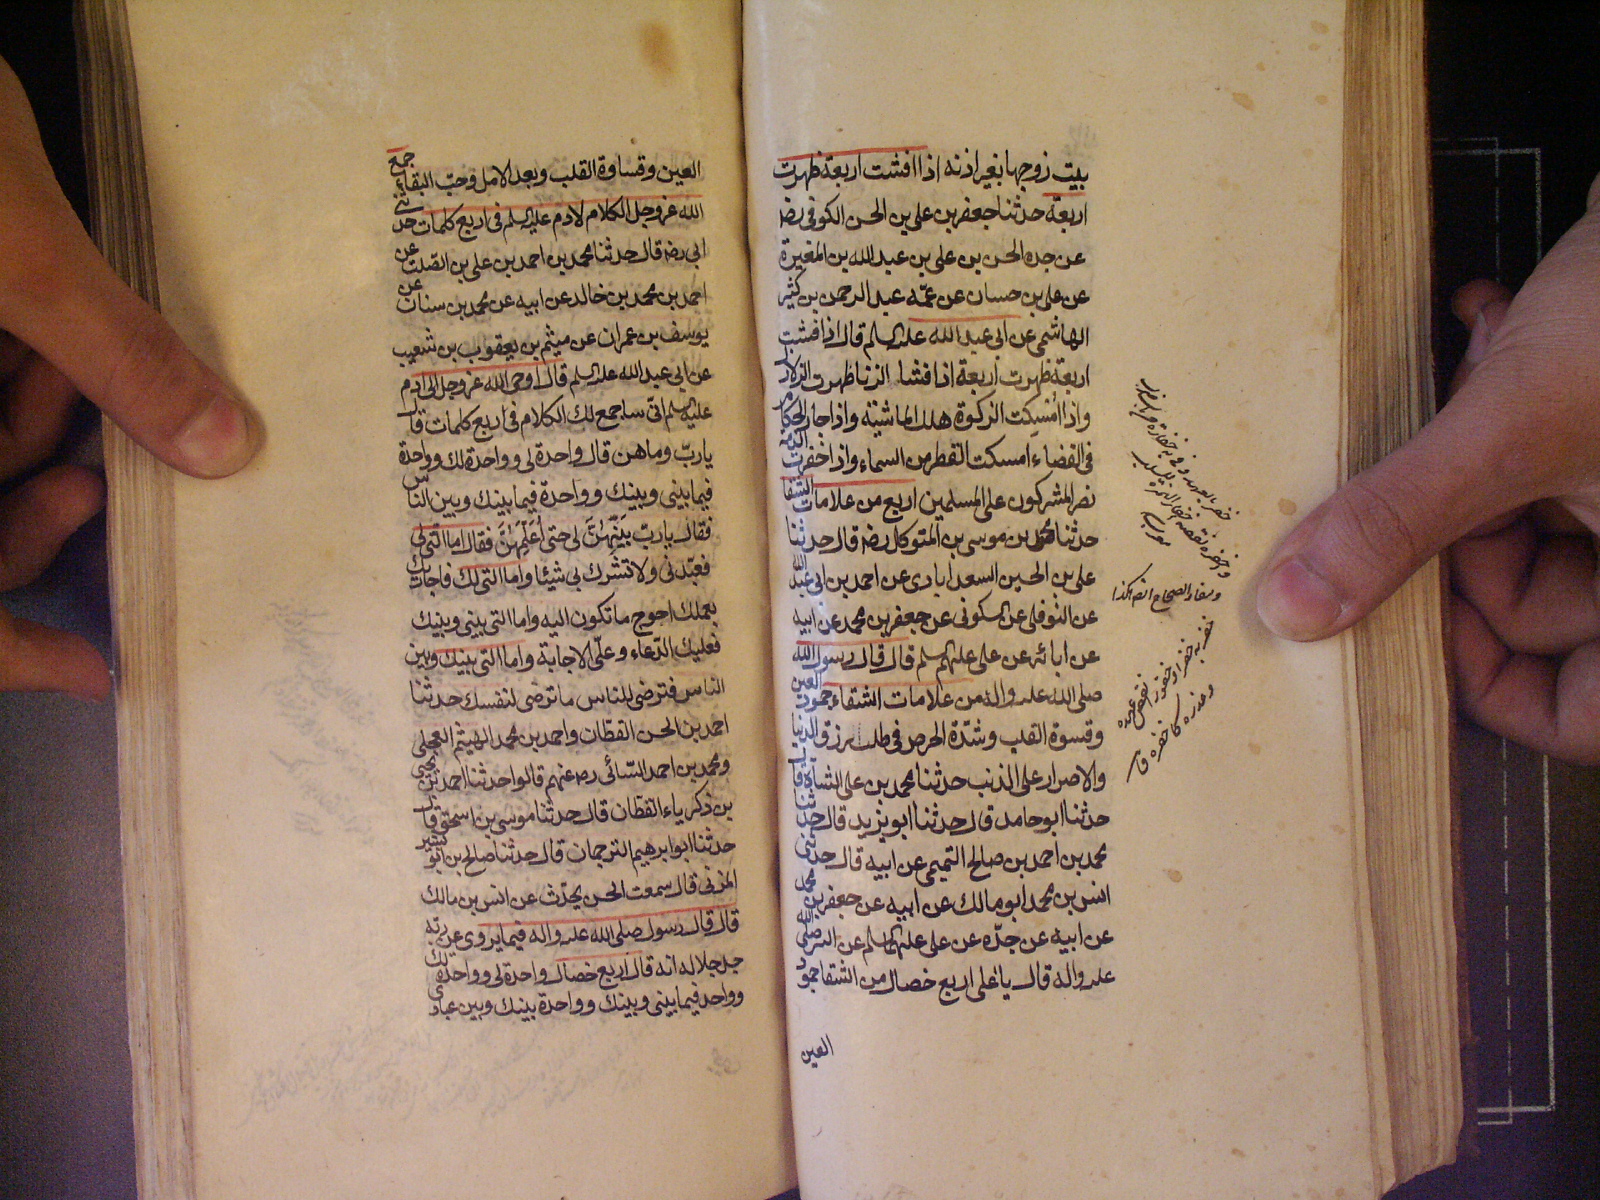 بيت زوجها بغير اذنه اذا افشت اربعة ظهرت
اربعة حدثنا جعفر بن على بن الحسن الكوفى رضه
عن جده الحسن بن على بن عبد الله بن المغيرة
عن على بن حسان عن عمّه عبد الرحمن بن كثير
الهاشمى عن ابى عبد الله عليه السلم قال اذا فشت
اربعة ظهرت اربعة اذا فشا الزنا ظهرت الزلازل
واذا امسكت الزكوة هلك الماشية واذا جار الحكام
فى القضاء امسكت القطر من السماء واذا خفرت الذمة
نصر المشركون على المسلمين اربع من علامات الشقا
حدثنا محمد بن موسى بن المتوكل رضه قال حدثنا
على بن الحسين السعدابادى عن احمد بن ابى عبد الله
عن النوفلى عن السكونى عن جعفر بن محمد عن ابيه
عن ابائه عن على عليهم السلم قال قال رسول الله
صلى الله عليه واله من علامات الشقاء جمود العين
وقسوة القلب وشدّة الحرص فى طلب رزق الدنيا
والاصرار على الذنب حدثنا محمد بن على الشاه قال
حدثنا ابو حامد قال حدثنا ابو يزيد قال حدثنا
محمد بن احمد بن صالح التميمى عن ابيه قال حدثنى
انس بن محمد ابو مالك عن ابيه عن جعفر بن محمد
عن ابيه عن جدّه عن على عليهم السلم عن النبى صلى الله
عليه واله قال يا على اربع خصال من الشقا جمود
العين
وفى الصحاح انه هكذا
العين وقساوة القلب وبعد الامل وحبّ البقاء جمع
الله عز وجل الكلام لادم عليه السلم فى اربع كلمات حدثنى
ابى رضه قال حدثنا محمد بن احمد بن على بن الصّلت عن
احمد بن محمد بن خالد عن ابيه عن محمد بن سنان عن
يوسف بن عمران عن ميثم بن يعقوب بن شعيب
عن ابى عبد الله عليه السلم قال اوحى الله عز وجل الى ادم
عليه السلم انّى ساجمع لك الكلام فى اربع كلمات قال
يا ربّ وما هن قال واحدة لى وواحدة لك وواحدة
فيما بينى وبينك وواحدة فيما بينك وبين الناس
فقال يا ربّ بيّنهنّ لى حتى اعلمهنّ فقال اما التى لى
فعبّدنى ولا تشرك بى شيئا واما التى لك فاجازيك
بعملك احوج ما تكون اليه واما التى بينى وبينك
فعليك الدّعاء وعلىّ الاجابة واما التى بينك وبين
الناس فترضى للناس ما ترضى لنفسك حدثنا
احمد بن الحسن القطّان واحمد بن محمد الهيثم العجلى
ومحمد بن احمد السّنائى رضى عنهم قالوا حدثنا احمد بن يحيى
بن زكرياء القطّان قال حدثنا موسى بن اسحق قال
حدثنا ابو ابرهيم الترجمان قال حدثنا صالح بن بشير ابو
المزنى قال سمعت الحسن يحدّث عن انس بن مالك
قال قال رسول صلى الله عليه واله فيما يروى عن ربّه
جل جلاله انه قال اربع خصال واحدة لى وواحدة لك
وواحد فيما بينى وبينك وواحدة بينك وبين عبادى